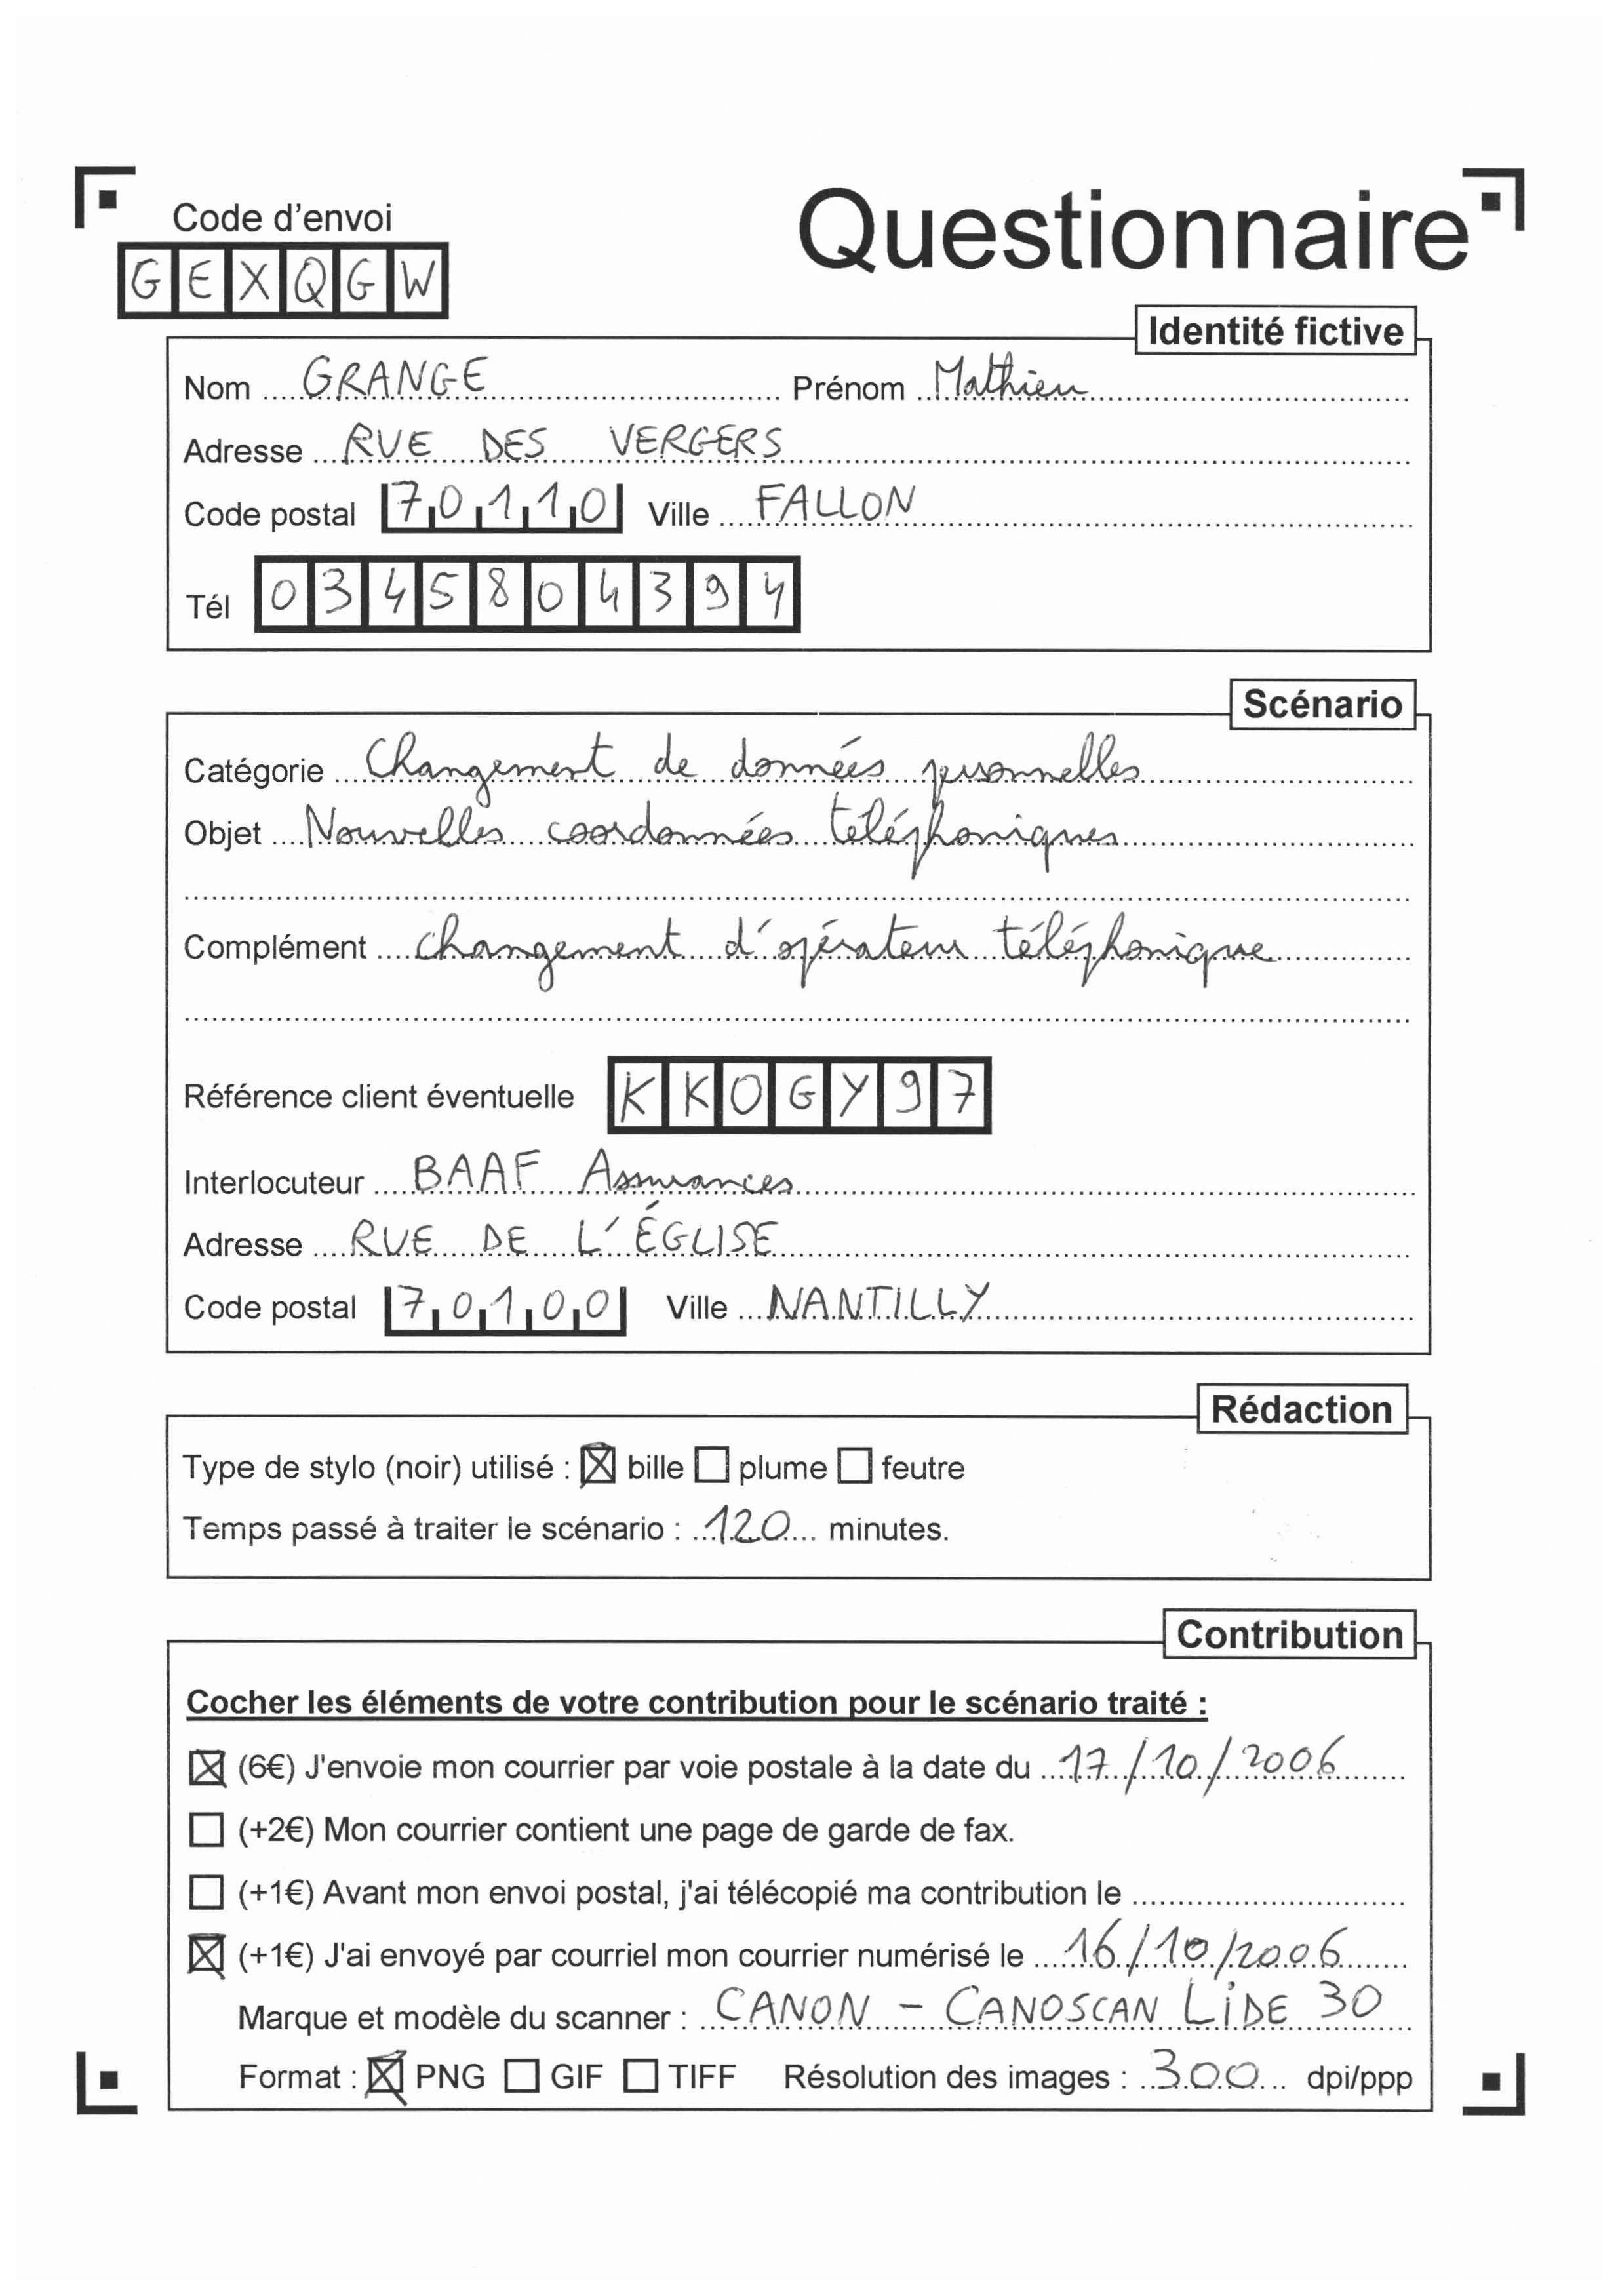 Code d'envoi
Questionnaire
GEXQGW
Identité fictive
Nom GRANGE Prénom Mathieu
Adresse RUE DES VERGERS
Code postal 70110 Ville FALLON
Tél 0345804394
Scénario
Catégorie Changement de données personnelles
Objet Nouvelles coordonnées téléphoniques
Complément changement d'opérateur téléphonique
Référence client éventuelle KKOGY97
Interlocuteur BAAF Assurances
Adresse RUE DE L'ÉGLISE
Code postal 70100 Ville NANTILLY
Rédaction
Type de stylo (noir) utilisé : ☒ bille ☐ plume ☐ feutre
Temps passé à traiter le scénario : 120 minutes.
Contribution
Cocher les éléments de votre contribution pour le scénario traité :
☒ (6€) J'envoie mon courrier par voie postale à la date du 17/10/2006
☐ (+2€) Mon courrier contient une page de garde de fax.
☐ (+1€) Avant mon envoi postal, j'ai télécopié ma contribution le
☒ (+1€) J'ai envoyé par courriel mon courrier numérisé le 16/10/2006
Marque et modèle du scanner : CANON - CANOSCAN LiDE 30
Format : ☒ PNG ☐ GIF ☐ TIFF Résolution des images : 300 dpi/ppp